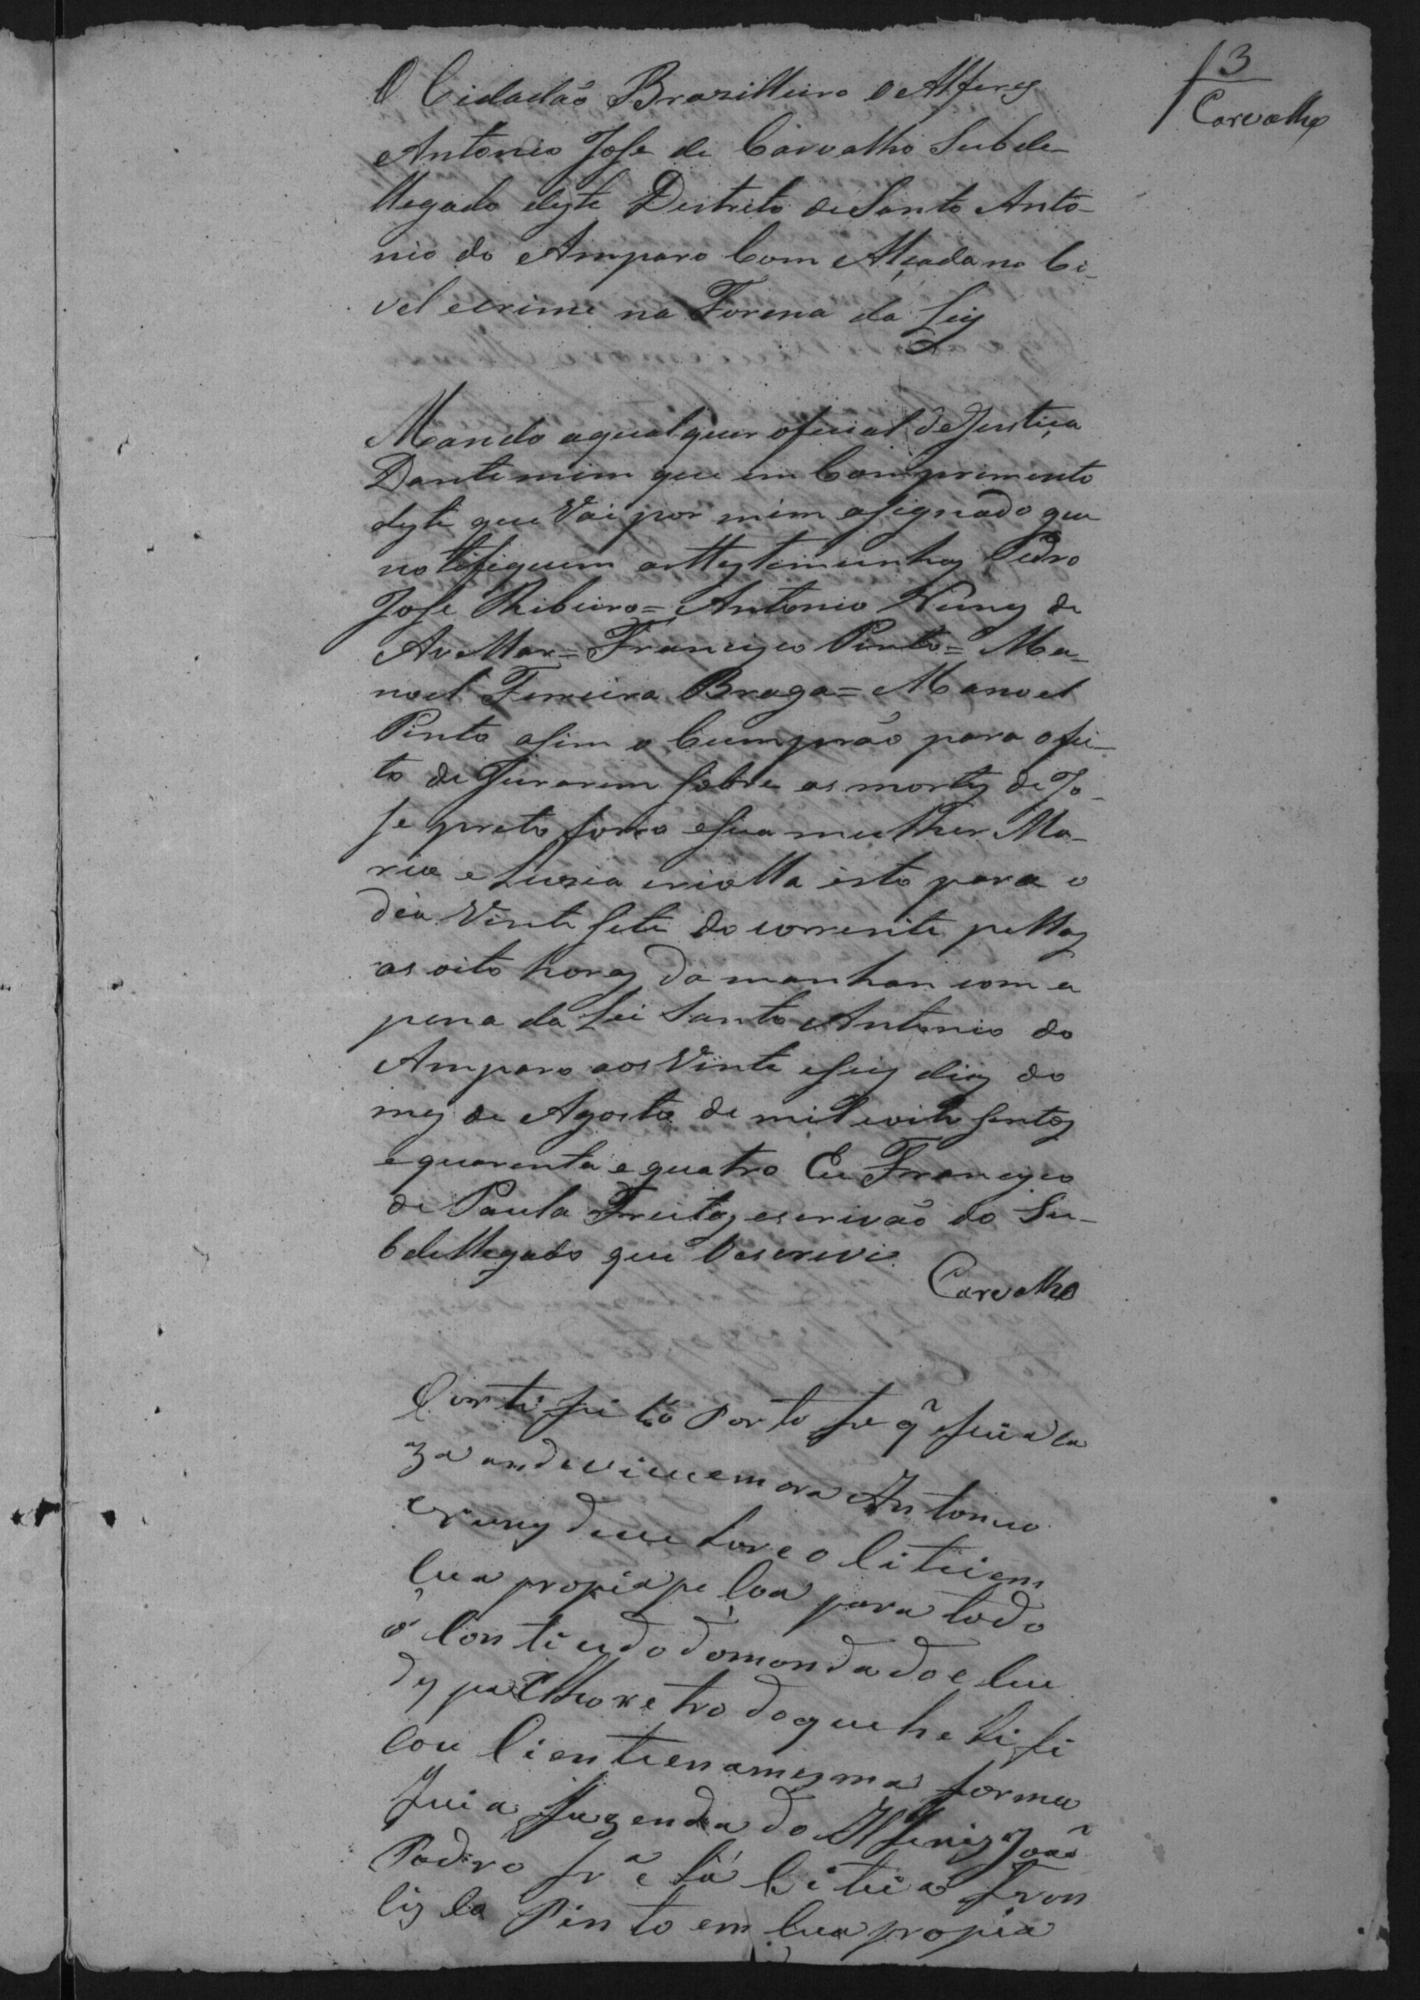 3
Carvalho
O Cidadão Brazilleiro o Alferes
Antonio Jose de Carvalho Subde-
llegado deste Destrito de Santo Anto-
nio do Amparo Com Alçada no Ci-
vel e crime na Forma da Ley
Mando a qualquer oficial de Justiça
Dante mim que em Comprimento
deste que Vai por mim asignado que
notefiquem as testemunhas Pedro
Jose Ribeiro= Antonio Nunes de
Avellar= Francisco Pinto= Ma-
noel Ferreira Braga= Manoel
Pinto asim o Cumprão para o fei-
to de Jurarem sobre as mortes de Jo-
se preto forro e sua mulher Ma-
ria e Luzia criolla isto para o
dia Vinte sete do corrente pellas
as oito horas da manhan com a
pena da Lei Santo Antonio do
Amparo aos Vinte e seis dias do
mes de Agosto de mil e oito sentos
e quarenta e quatro Eu Francisco
de Paula Freitas escrivão do Su-
bdellegado que o escrevi
Carvalho
Certifico Porto fe q̃ e fui a ca
za onde vive e mora Antonio
Nunes de e o Citei em
Sua propia pe Soa para todo
o Contiudo do mondado e Seu
despalho retro do que he di fi
cou Ciente e na mesma forma
fui a fazenda do Alferis João
Padro frª e lá Citei a Fron
Cisco Pinto em Sua propia